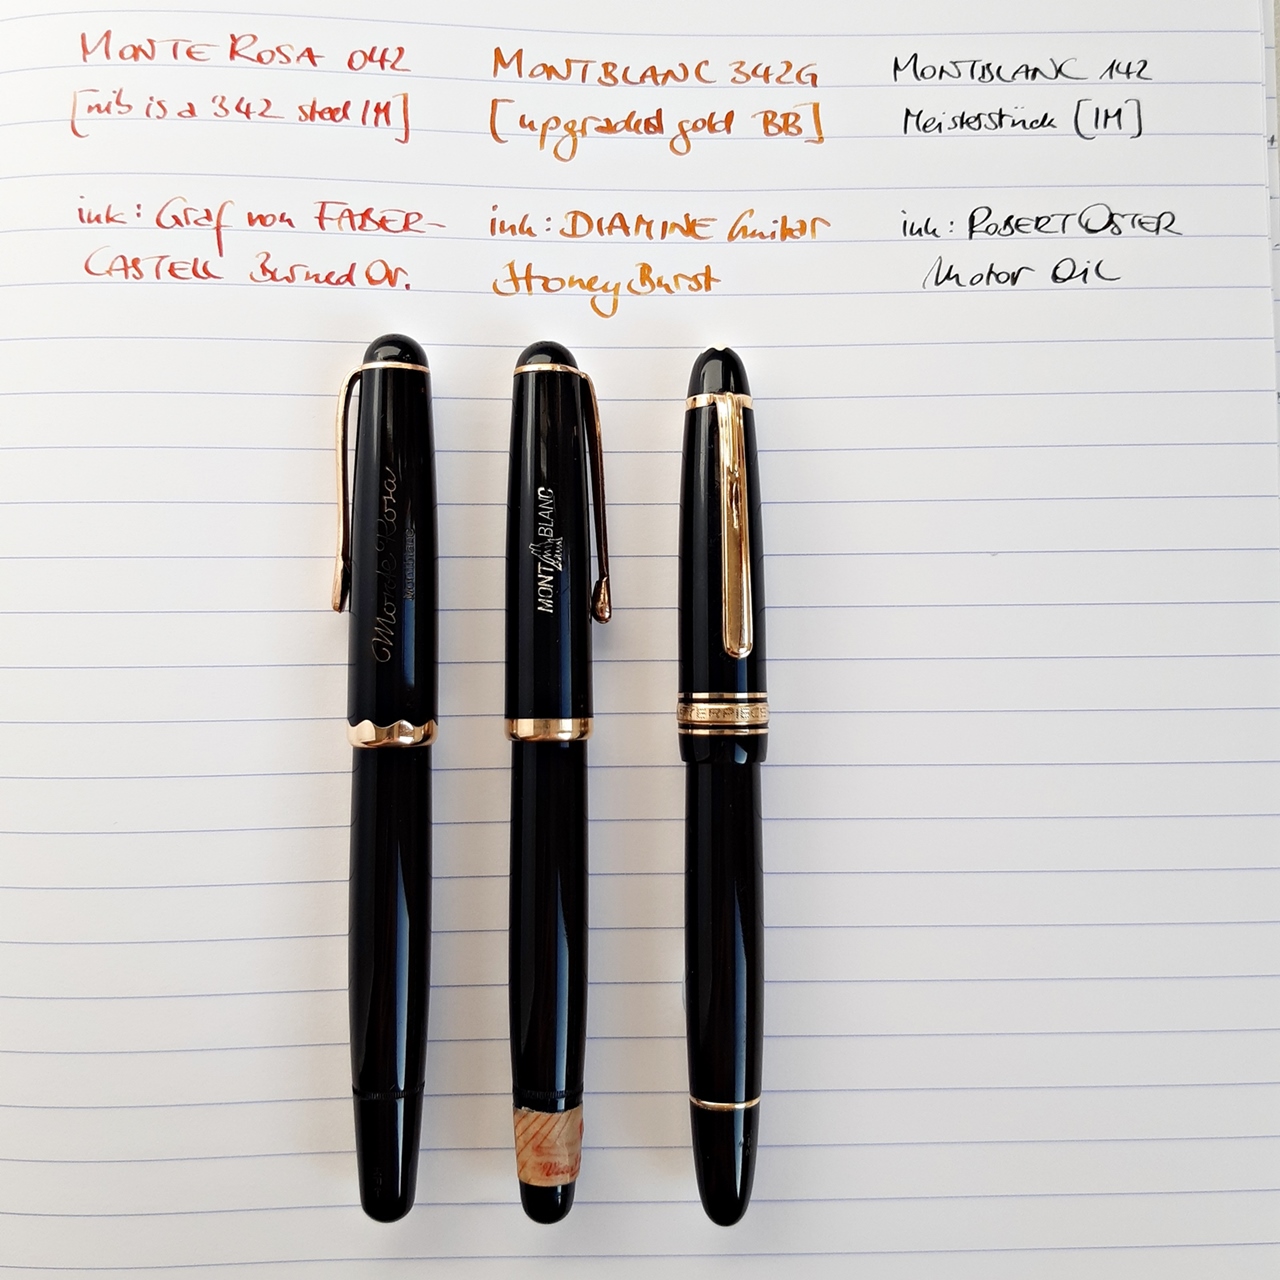 MONTE ROSA 042
[nib is a 342 steel IM]
ink: Graf von FABER-
CASTELL Burned Or.
MONTBLANC 342G
[upgraded gold BB]
ink: DIAMINE Guitar
Honey Burst
MONTBLANC 142
Meisterstück [IM]
ink: ROBERT OSTER
Motor Oil
Monte Rosa
MONTBLANC
MONT BLANC
TERPIECE